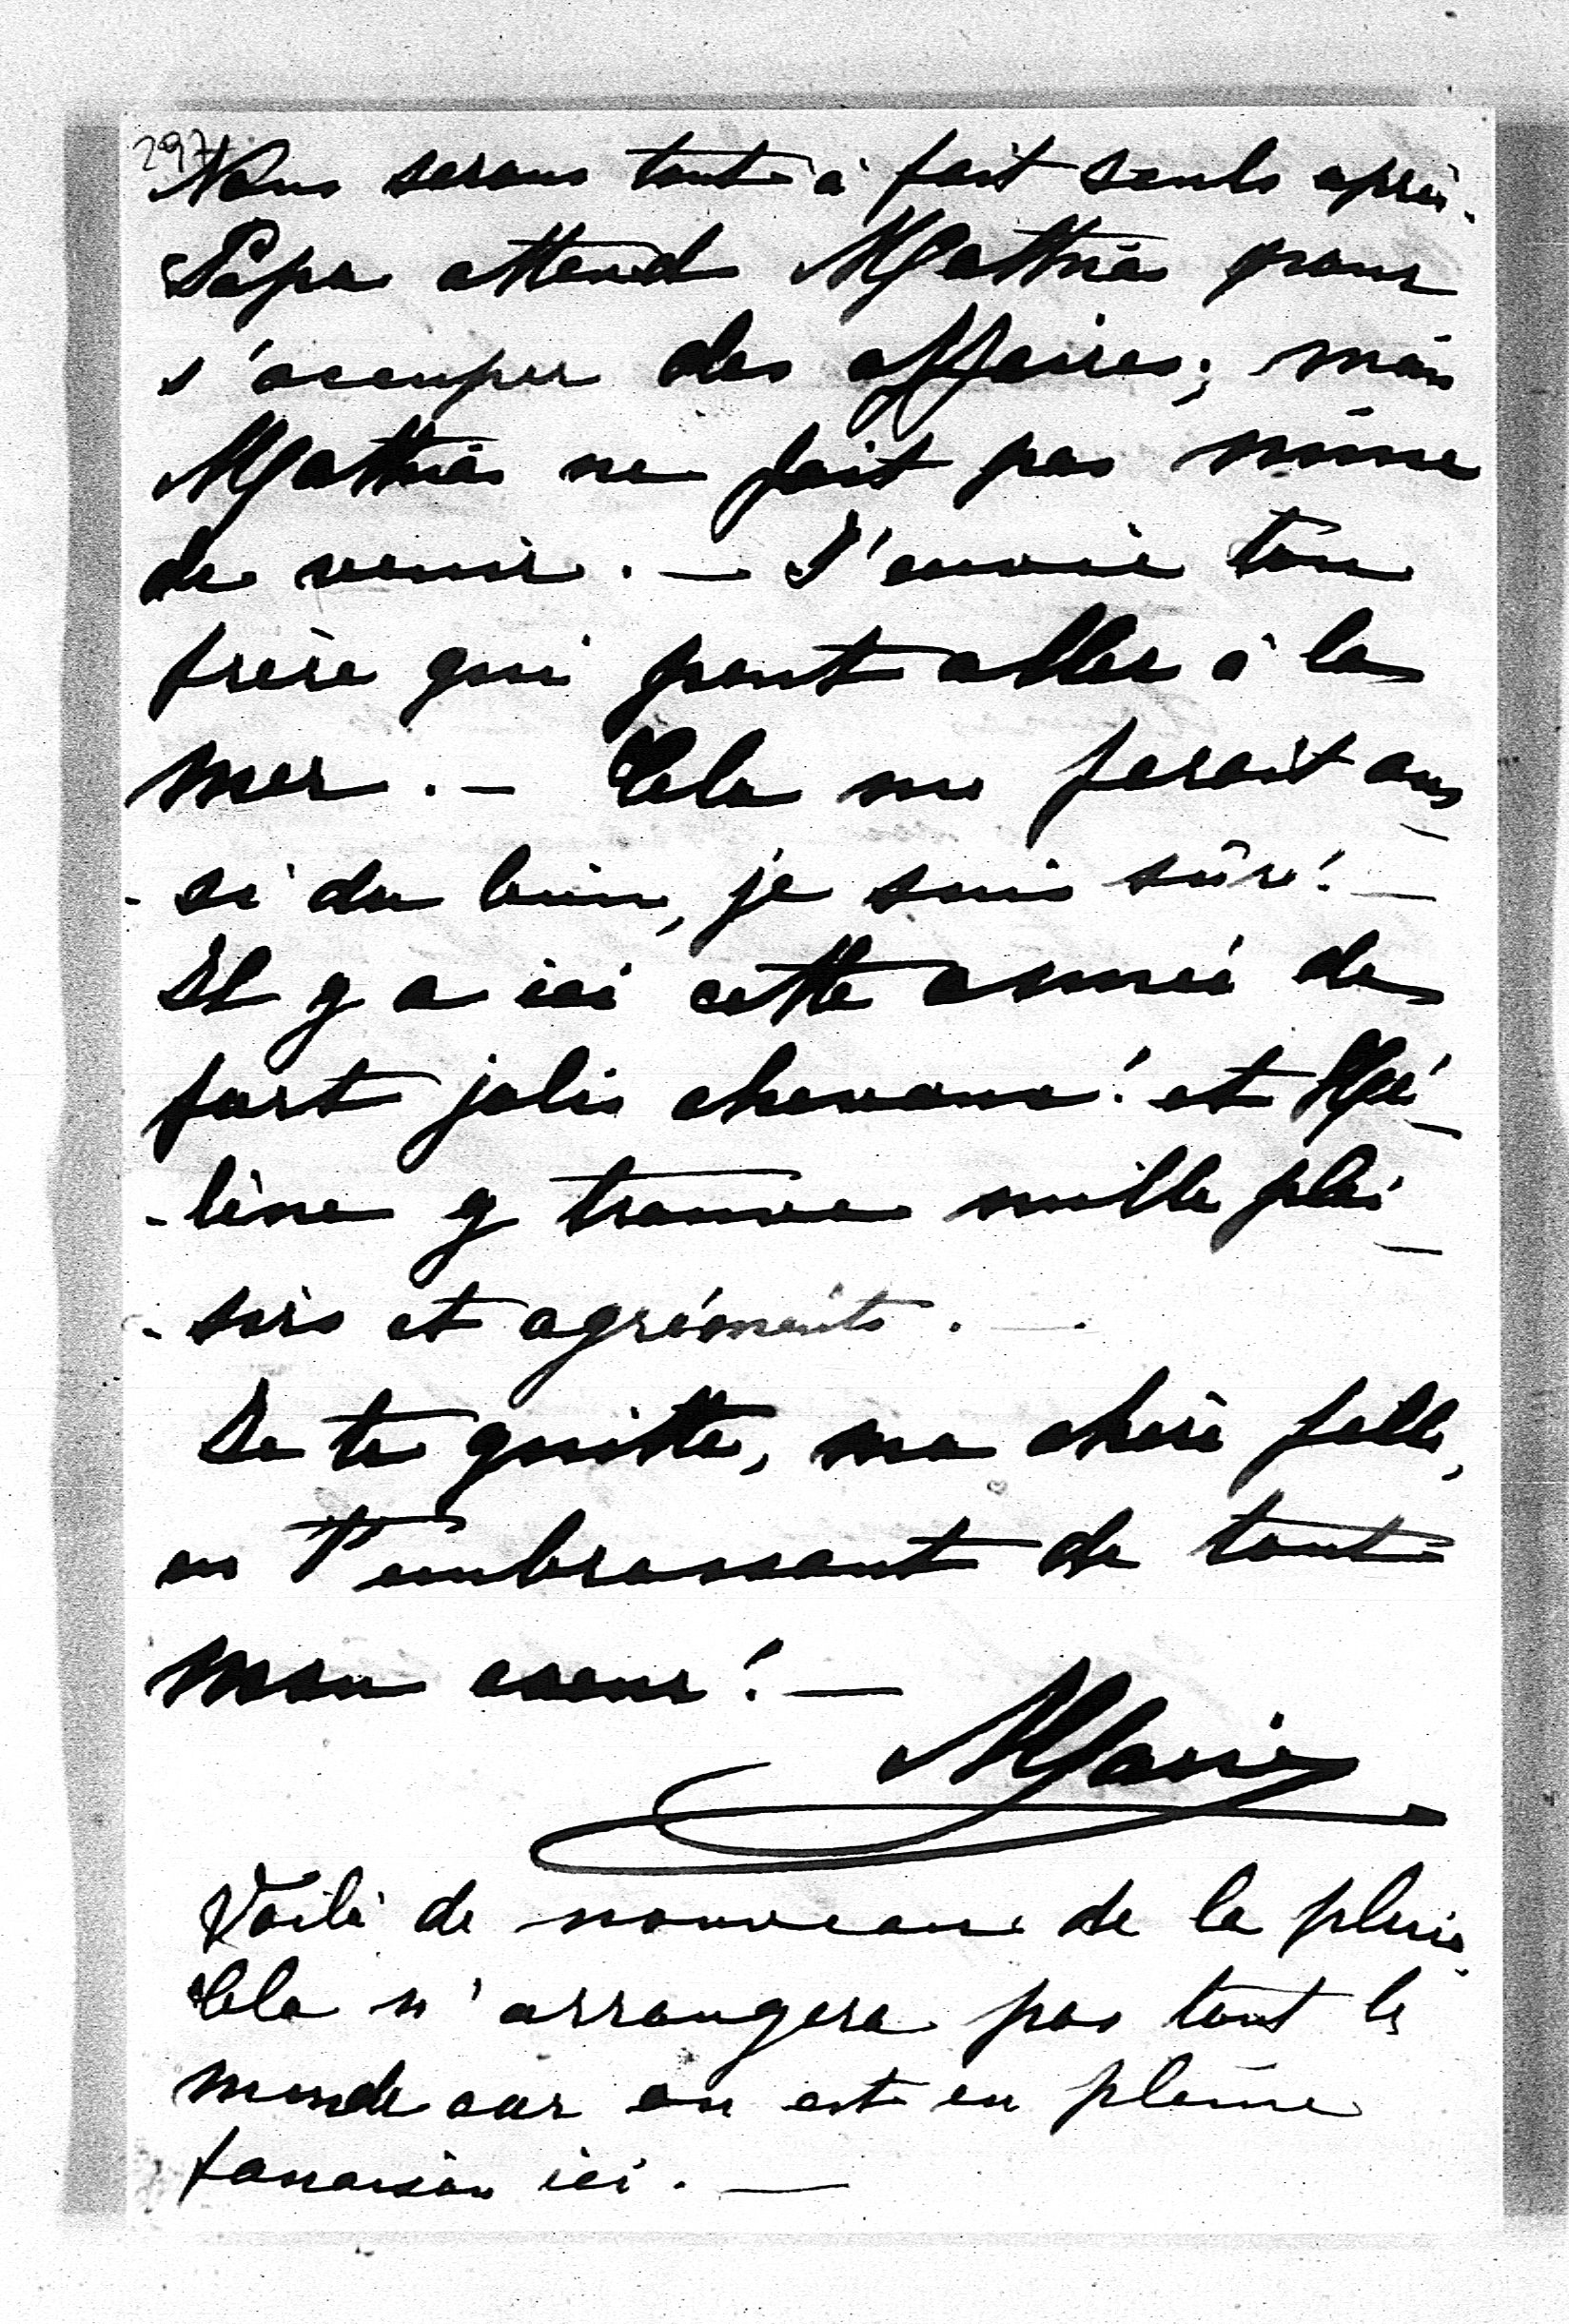 297
Nous serons tout à fait seuls après.
Papa attend Mathieu pour
s'occuper des affaires; mais
Mathieu ne fait pas mine
de venir. — J'envie ton
frère qui peut aller à la
mer. — Cela me ferait aus-
-si du bien, je suis sûre! —
Il y a ici cette année de
fort jolis chevaux! et Hé-
-lène y trouve mille plai-
-sirs et agréments. —
Je te quitte, ma chère fille,
en t'embrassant de tout
mon coeur! —
Marie
Voilà de nouveau de la pluie.
Cela n'arrangera pas tout le
monde car on est en pleine
fanaison ici. —